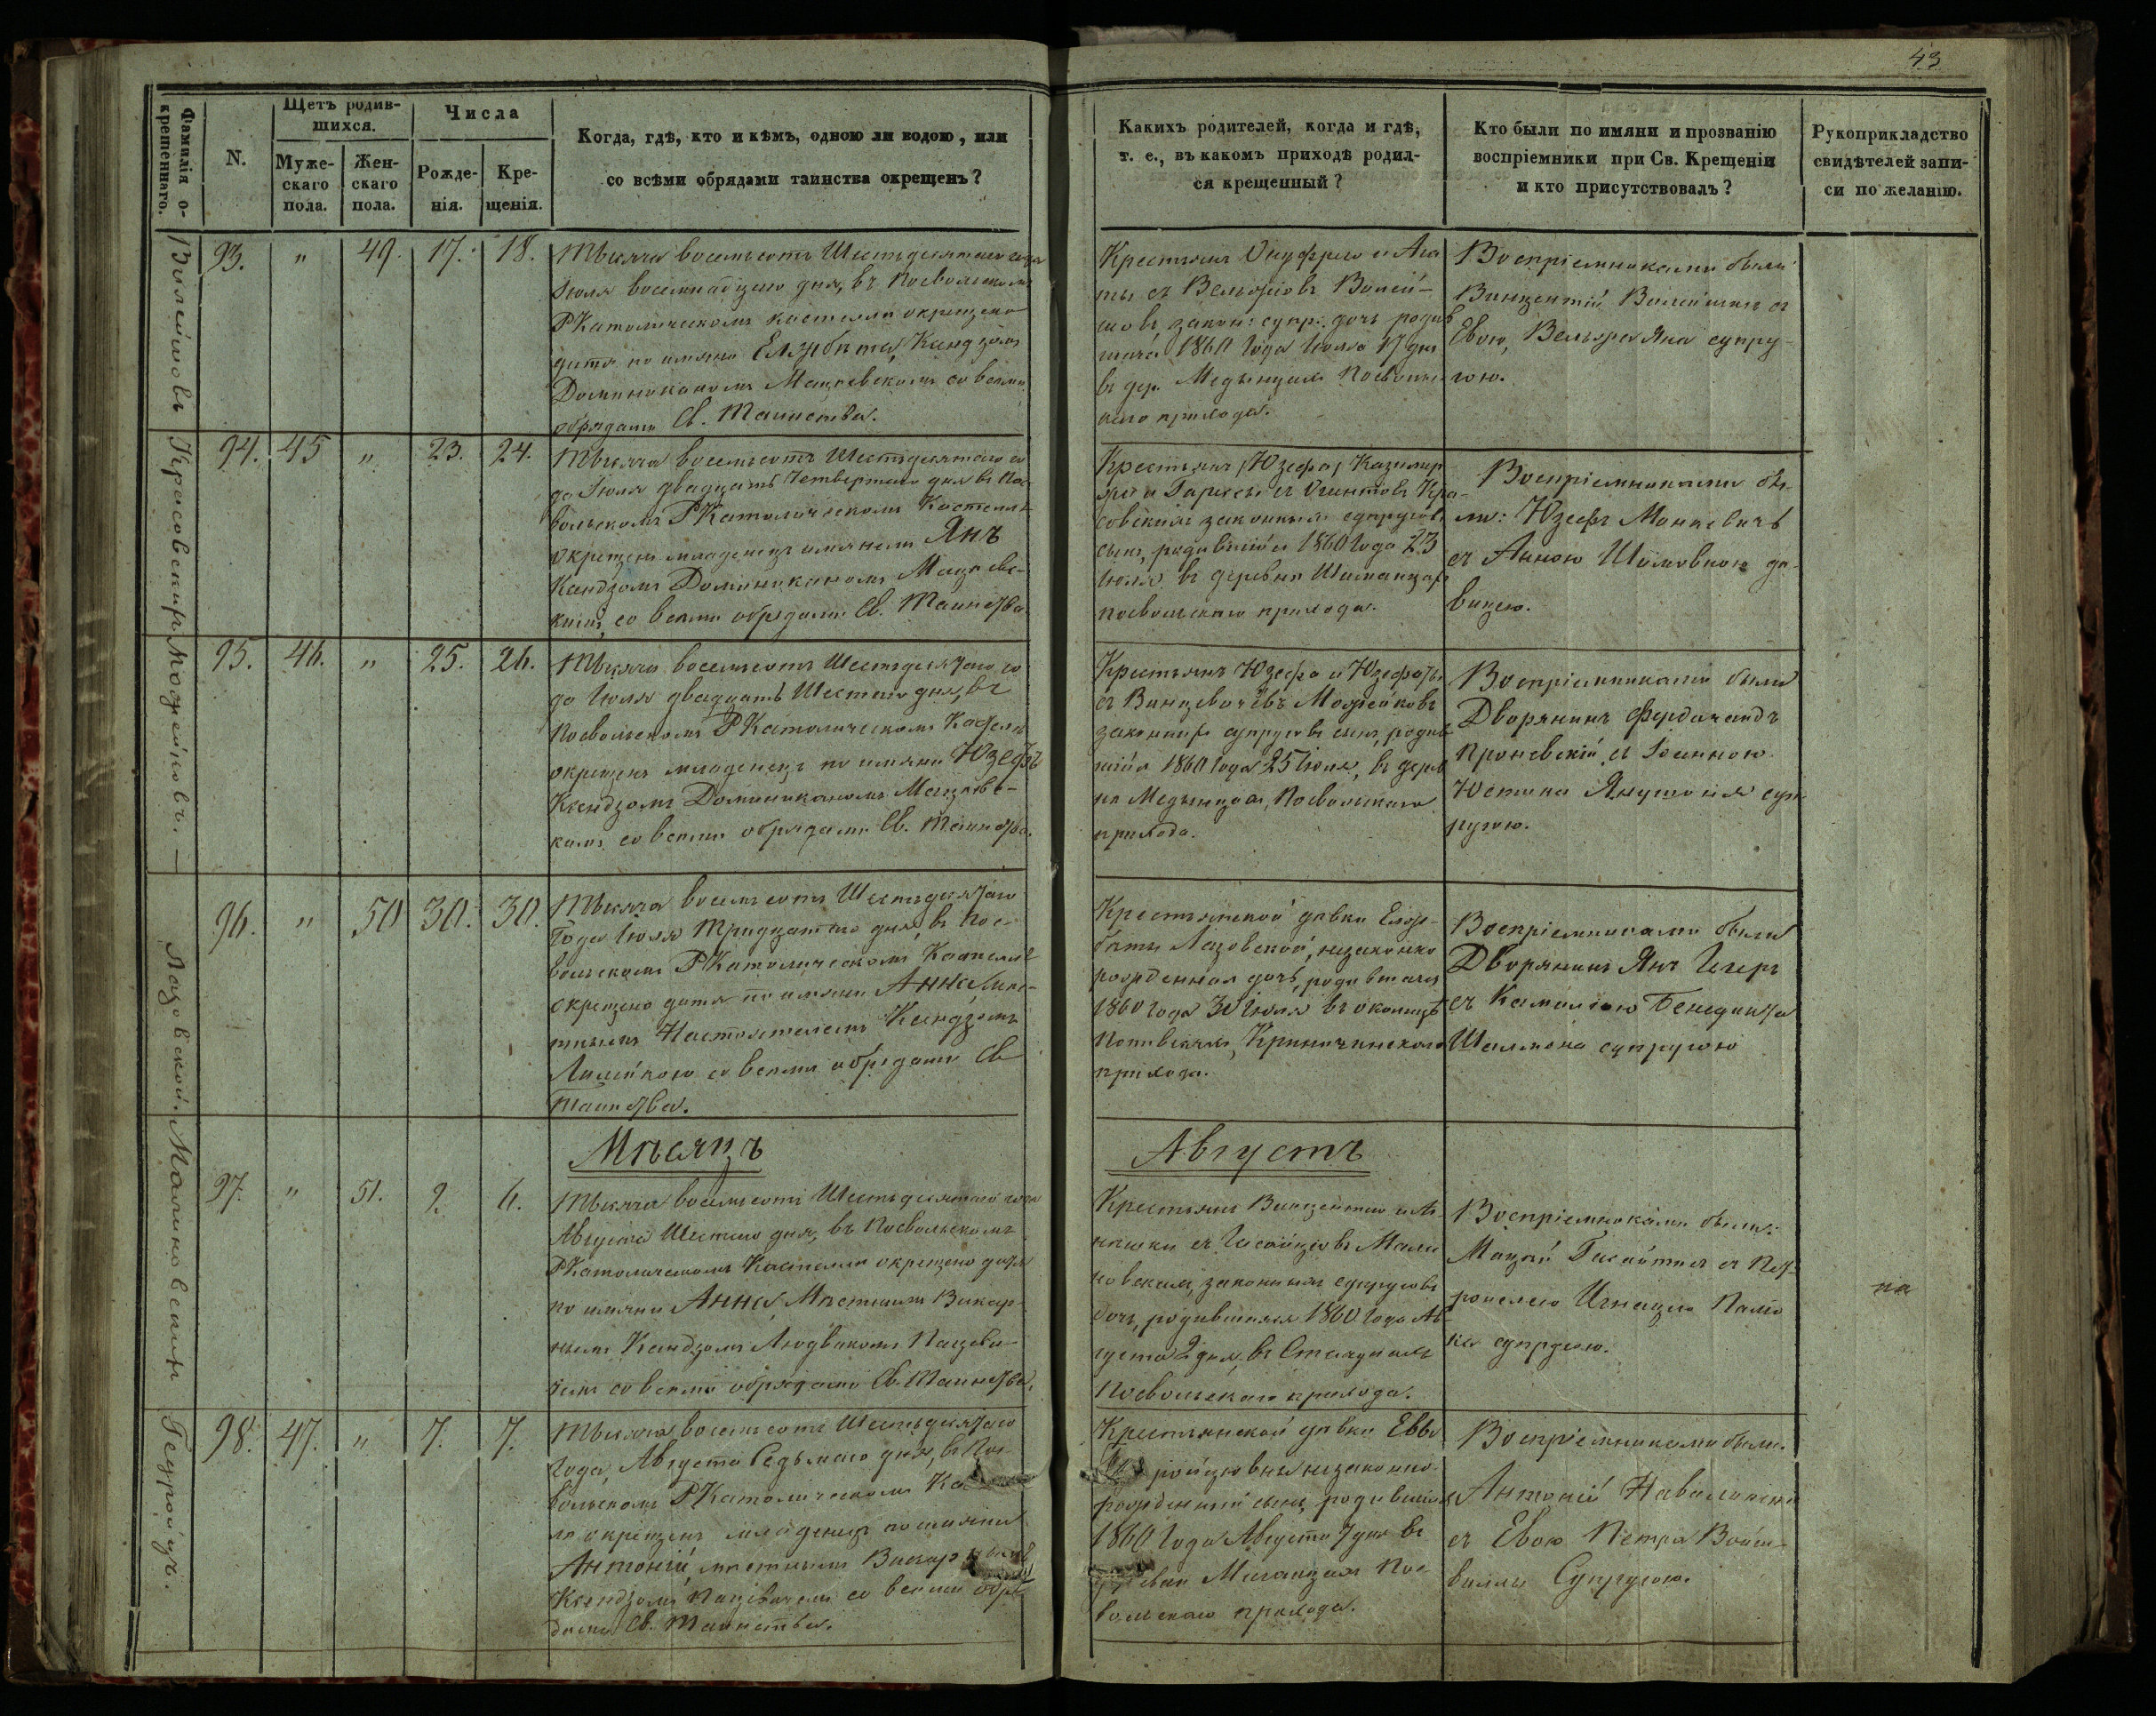 43
Фамилія о-
крещеннаго.
N.
Щетъ родив-
шихся.
Муже-
скаго
пола.
Жен-
скаго
пола.
Числа
Рожде-
нія.
Кре-
щенія.
Когда, гдѣ, кто и кѣмъ, одною ли водою, или
со всѣми обрядами таинства окрещенъ?
Какихъ родителей, когда и гдѣ,
т. е., въ какомъ приходѣ родил-
ся крещенный?
Кто были по имяни и прозванію
воспріемники при Св. Крещеніи
и кто присутствовалъ?
Рукоприкладство
свидѣтелей запи-
си по желанію.
93. " 49. 17. 18.
Тысяча восемьсотъ Шестьдесятаго года
Іюля восемнадцаго дня, въ Посвольскомъ
РКатолическомъ костелѣ окрещено
дитя по имяни Елзубѣта, Ксендзомъ
Доминиканомъ Мацѣевскимъ со всѣми
обрядами Св. Таинства.
Крестьянъ Онуфрія и Ага
ты съ
законн: супр. дочь родив
шаяся 1860 года Іюля 17 дня
въ дер. Медынцахъ Посволь-
скаго прихода.
Воспріемниками были
Винцентій съ
Евою, Яна супру-
гою.
Красовскихъ
94. 45 " 23. 24.
Тысяча восемьсотъ Шестьдесятаго го
да Іюля двадцать Четвертаго дня въ Пос-
вольскомъ РКатолическомъ Костелѣ
окрещенъ младенецъ имянемъ Янъ
Ксендзомъ Доминиканомъ Мацѣевс-
кимъ, со всѣми обрядами Св. Таинства.
Крестьянъ Юзефа, Казимир
съ Кра-
совскихъ законныхъ супруговъ
сынъ, родившійся 1860 года 23
Іюля въ деревнѣ
посвольскаго прихода.
Воспріемниками бы-
ли: Юзефъ Монкевичъ
съ Анною дѣ-
вицею.
Можейковъ. —
95. 46. " 25. 26.
Тысяча восемьсотъ Шестьдесятаго го
да Іюля двадцать Шестаго дня, въ
Посвольскомъ РКатолическомъ Костелѣ
окрещенъ младенецъ по имяни Юзефъ
Ксендзомъ Доминиканомъ Мацѣевс-
кимъ со всѣми обрядами Св. Таинства.
Крестьянъ Юзефа и Юзефаты
съ Винцевичевъ Можейковъ
законныхъ супруговъ сынъ, родив
шійся 1860 года 25 Іюля, въ дерев
нѣ Медынцахъ, Посвольскаго
прихода.
Воспріемниками были
Дворянинъ Фердинандъ
Проневскій съ Іоанною
Юстина суп-
ругою.
Лазовской.
96. " 50 30. 30.
Тысяча восемьсотъ Шестьдесятаго
Года Іюля Тридцатаго дня, въ Пос-
вольскомъ РКатолическомъ Костелѣ
окрещено дитя по имяни Анна, Мѣс-
тнымъ Настоятелемъ Ксендзомъ
со всѣми обрядами Св
Таинства.
Крестьянской дѣвки Елзу-
бѣты Лазовской, незаконно
рожденная дочь, родившаяся
1860 года 30 Іюля въ околицѣ
прихода.
Воспріемниками были
Дворянинъ Янъ
съ Камиллою Бенедикта
супругою
Мѣсяцъ
Августъ
Малиновскихъ
97. " 51. 2. 6.
Тысяча восемьсотъ Шестьдесятаго года
Августа Шестаго дня, въ Посвольскомъ
РКатолическомъ Костелѣ окрещено дитя
по имяни Анна, Мѣстнымъ Викар-
нымъ Ксендзомъ Людвикомъ Пацеви-
чемъ со всѣми обрядами Св. Таинства.
Крестьянъ Винцентія и
съ Мали
новскихъ, законныхъ супруговъ
дочь, родившаяся 1860 года Ав-
густа 2 дня, въ
Посвольскаго прихода.
Воспріемниками были:
Мацѣй съ Пет-
ронелею Игнація
супругою.
на
Гедройцъ.
98. 47. " 7. 7.
Тысяча восемьсотъ Шестьдесятаго
Года, Августа Седьмаго дня, въ Пос-
вольскомъ РКатолическомъ
лѣ окрещенъ младенецъ по имяни
Антоній, мѣстнымъ
Ксендзомъ Пацевичемъ со всѣми обря
дами Св. Таинства.
Крестьянской дѣвки Евы
незаконно
рожденный сынъ, родившійся
1860 года Августа 7 дня въ
Пос
вольскаго прихода.
Воспріемниками были.
Антоній
съ Евою Петра
Супругою.